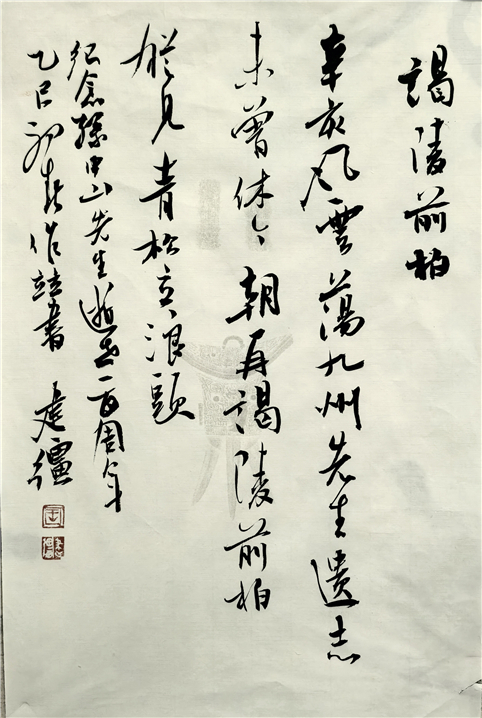 谒陵前柏
辛亥风云荡九州先生遗志
未曾休今朝再谒陵前柏
犹见青松立浪头
纪念孙中山先生逝世一百周年
乙巳初春作并书 建疆